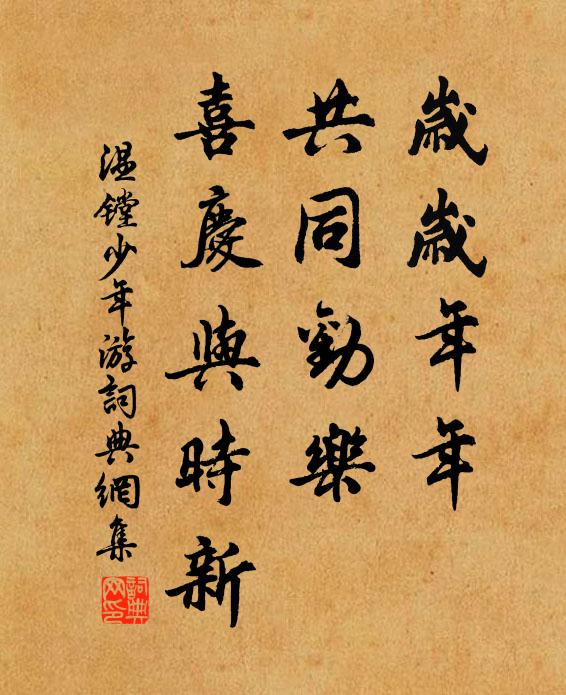 歲歲年年
共同歡樂
喜慶與時新
溫鏜少年游詞典網集
詞典网印